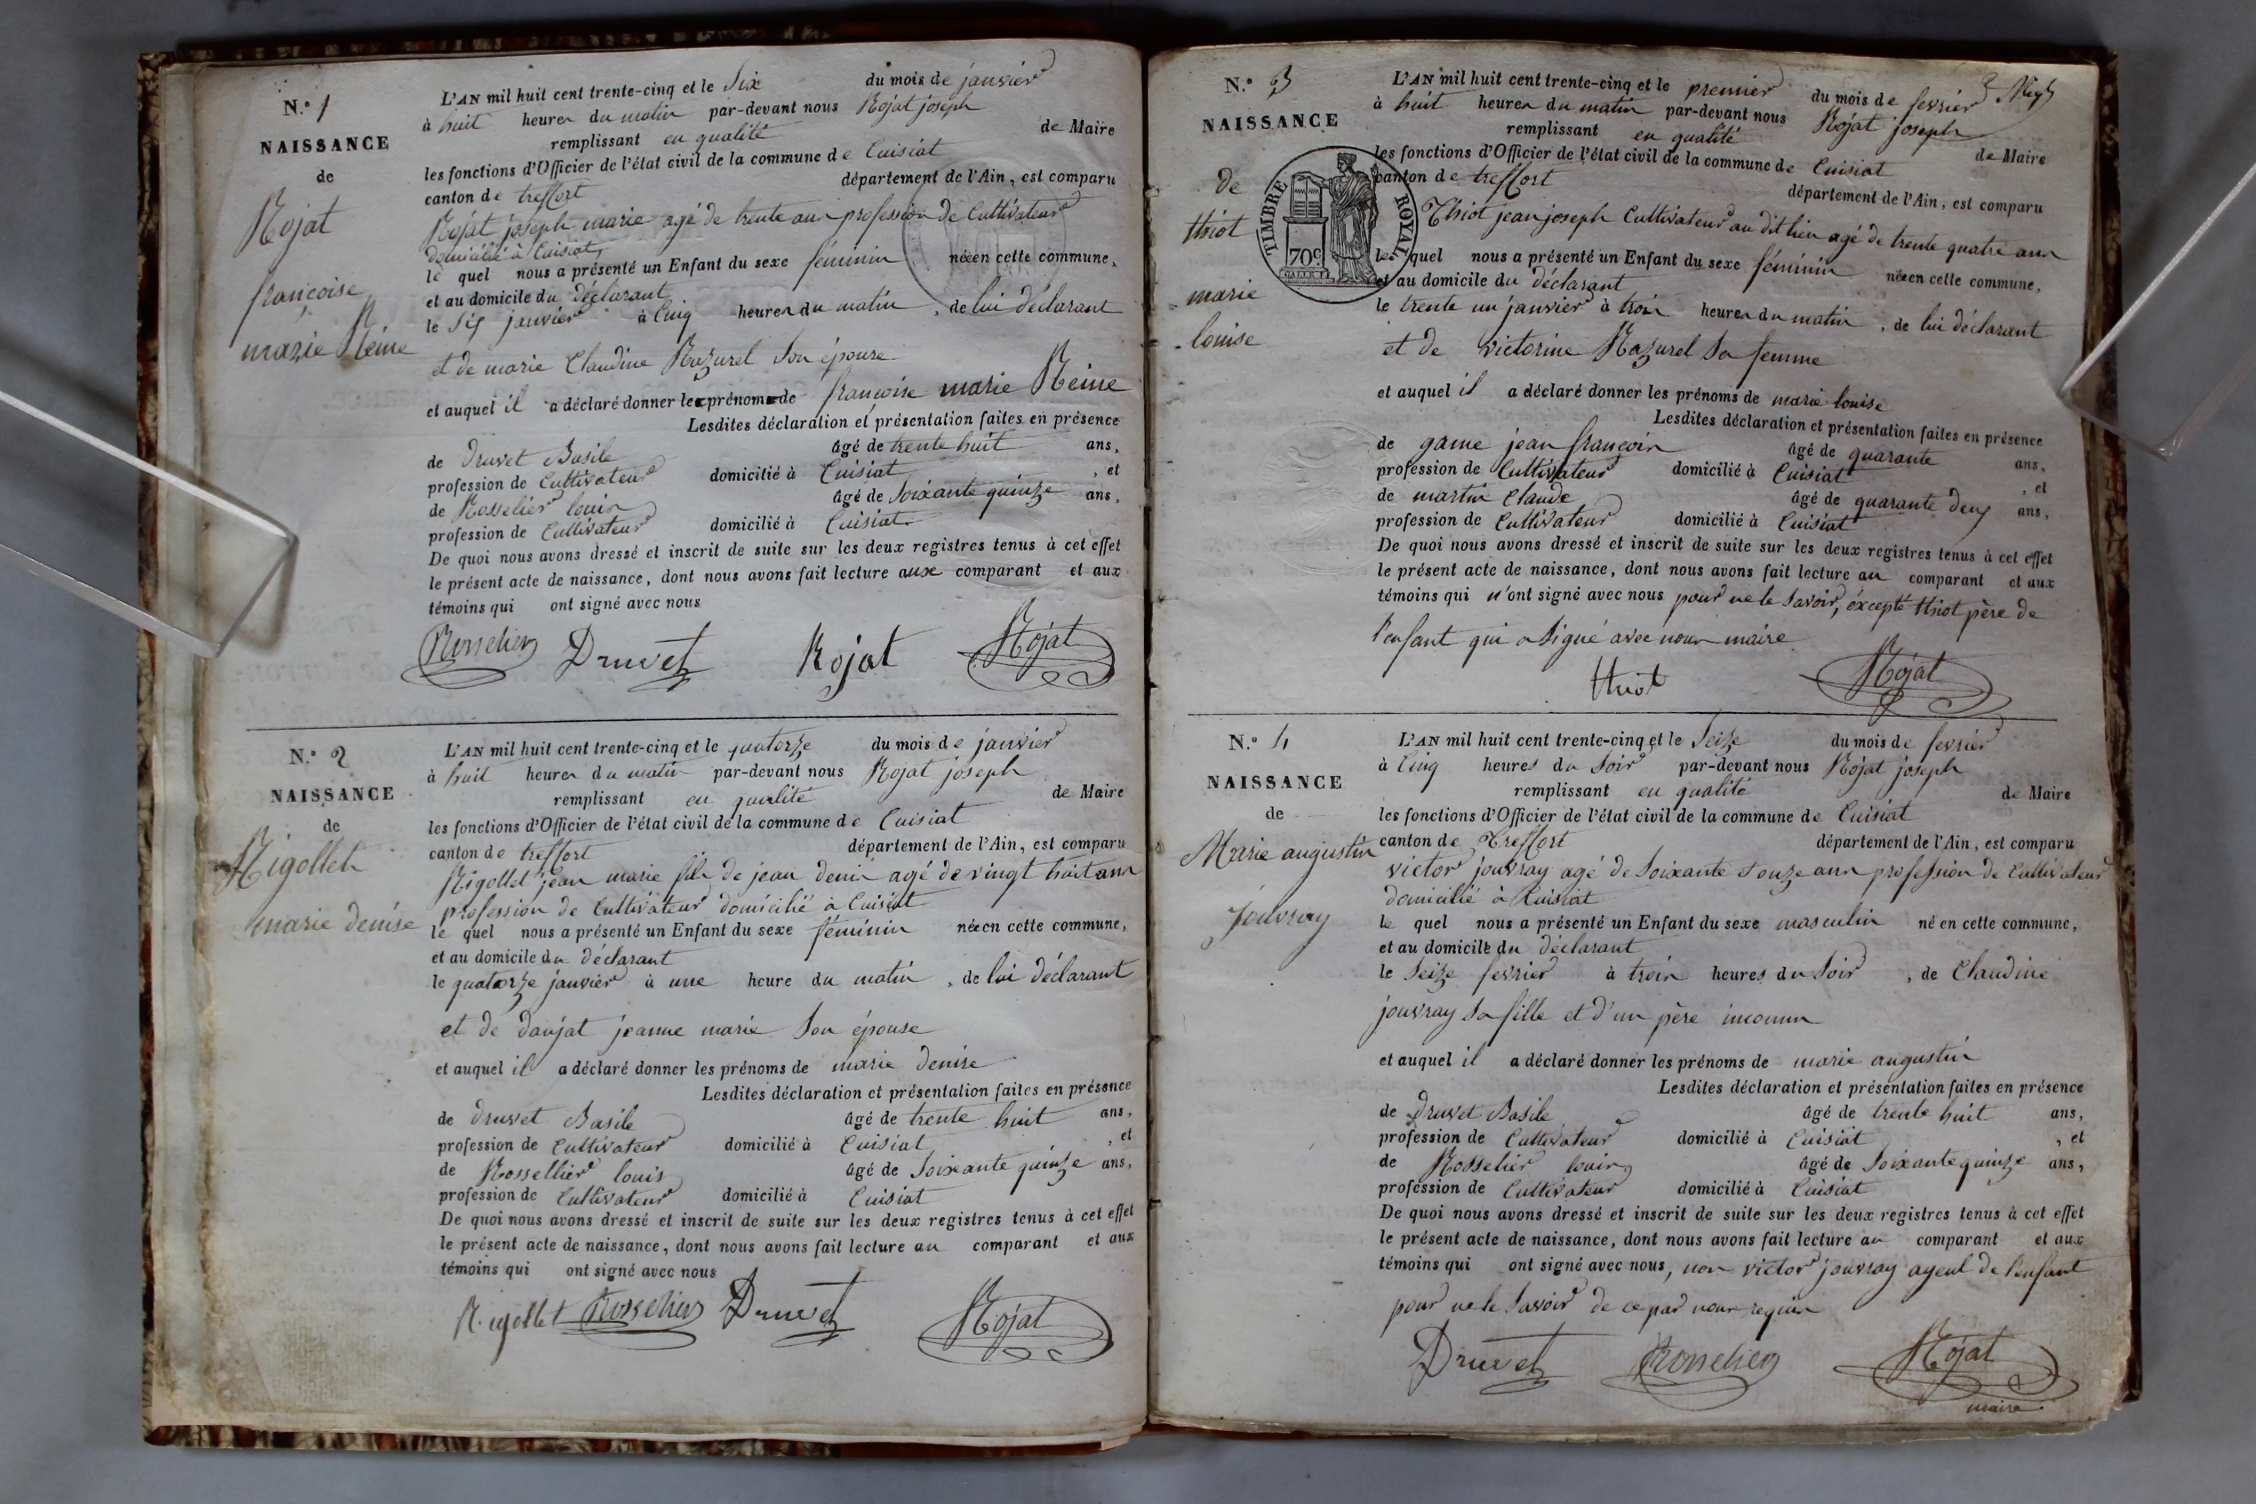 N.º 1
NAISSANCE
de
Rojat
françoise
marie Reine
L'AN mil huit cent trente-cinq et le six du mois de janvier
à huit heures du matin par-devant nous Rojat joseph
remplissant en qualité de Maire
les fonctions d'Officier de l'état civil de la commune de Cuisiat
canton de treffort département de l'Ain, est comparu
Rojat joseph marie agé de trente ans profession de Cultivateur
domicilié à Cuisiat
le quel nous a présenté un Enfant du sexe féminin née en cette commune,
et au domicile du déclarant
le six janvier à Cinq heures du matin, de lui déclarant
et de marie Claudine Mazurel son épouse
et auquel il a déclaré donner les prénoms de françoise marie Reine
Lesdites déclaration et présentation faites en présence
de druvet Basile âgé de trente huit ans,
profession de Cultivateur domicilié à Cuisiat, et
de Rosselier louis âgé de soixante quinze ans,
profession de Cultivateur domicilié à Cuisiat
De quoi nous avons dressé et inscrit de suite sur les deux registres tenus à cet effet
le présent acte de naissance, dont nous avons fait lecture aux comparant et aux
témoins qui ont signé avec nous
Rosselier Druvet Rojat Rojat
N.º 2
NAISSANCE
de
Rigollet
marie denise
L'AN mil huit cent trente-cinq et le quatorze du mois de janvier
à huit heures du matin par-devant nous Rojat joseph
remplissant en qualité de Maire
les fonctions d'Officier de l'état civil de la commune de Cuisiat
canton de treffort département de l'Ain, est comparu
Rigollet jean marie fils de jean denis agé de vingt huit ans
profession de Cultivateur domicilié à Cuisiat
le quel nous a présenté un Enfant du sexe féminin née en cette commune,
et au domicile du déclarant
le quatorze janvier à une heure du matin, de lui déclarant
et de daujat jeanne marie son épouse
et auquel il a déclaré donner les prénoms de marie denise
Lesdites déclaration et présentation faites en présence
de druvet Basile âgé de trente huit ans,
profession de Cultivateur domicilié à Cuisiat, et
de Rossellier louis âgé de soixante quinze ans,
profession de Cultivateur domicilié à Cuisiat
De quoi nous avons dressé et inscrit de suite sur les deux registres tenus à cet effet
le présent acte de naissance, dont nous avons fait lecture au comparant et aux
témoins qui ont signé avec nous
Rigollet Rosselier Druvet Rojat
N.º 3
NAISSANCE
de
thiot
marie
louise
TIMBRE ROYAL
70c
L'AN mil huit cent trente-cinq et le premier du mois de fevrier
à huit heures du matin par-devant nous Rojat joseph
remplissant en qualité de Maire
les fonctions d'Officier de l'état civil de la commune de Cuisiat
canton de treffort département de l'Ain, est comparu
Thiot jean joseph Cultivateur au dit lieu agé de trente quatre ans
le quel nous a présenté un Enfant du sexe féminin née en cette commune,
et au domicile du déclarant
le trente un janvier à trois heures du matin, de lui déclarant
et de victorine Mazurel sa femme
et auquel il a déclaré donner les prénoms de marie louise
Lesdites déclaration et présentation faites en présence
de game jean françois âgé de quarante ans,
profession de Cultivateur domicilié à Cuisiat, et
de martin Claude âgé de quarante deux ans,
profession de Cultivateur domicilié à Cuisiat
De quoi nous avons dressé et inscrit de suite sur les deux registres tenus à cet effet
le présent acte de naissance, dont nous avons fait lecture au comparant et aux
témoins qui n'ont signé avec nous pour ne le savoir, éxcepté thiot père de
l'enfant qui a signé avec nous maire
thiot Rojat
N.º 4
NAISSANCE
de
Marie augustin
Jouvray
L'AN mil huit cent trente-cinq et le seize du mois de fevrier
à Cinq heures du soir par-devant nous Rojat joseph
remplissant en qualité de Maire
les fonctions d'Officier de l'état civil de la commune de Cuisiat
canton de Treffort département de l'Ain, est comparu
victor jouvray agé de soixante douze ans profession de Cultivateur
domicilié à Cuisiat
le quel nous a présenté un Enfant du sexe masculin né en cette commune,
et au domicile du déclarant
le seize fevrier à trois heures du soir, de Claudine
jouvray sa fille et d'un père inconnu
et auquel il a déclaré donner les prénoms de marie augustin
Lesdites déclaration et présentation faites en présence
de druvet Basile âgé de trente huit ans,
profession de Cultivateur domicilié à Cuisiat, et
de Rosselier louis âgé de soixante quinze ans,
profession de Cultivateur domicilié à Cuisiat
De quoi nous avons dressé et inscrit de suite sur les deux registres tenus à cet effet
le présent acte de naissance, dont nous avons fait lecture au comparant et aux
témoins qui ont signé avec nous, non victor jouvray ayeul de l'enfant
pour ne le savoir de ce par nous requis
Druvet Rosselier Rojat
maire